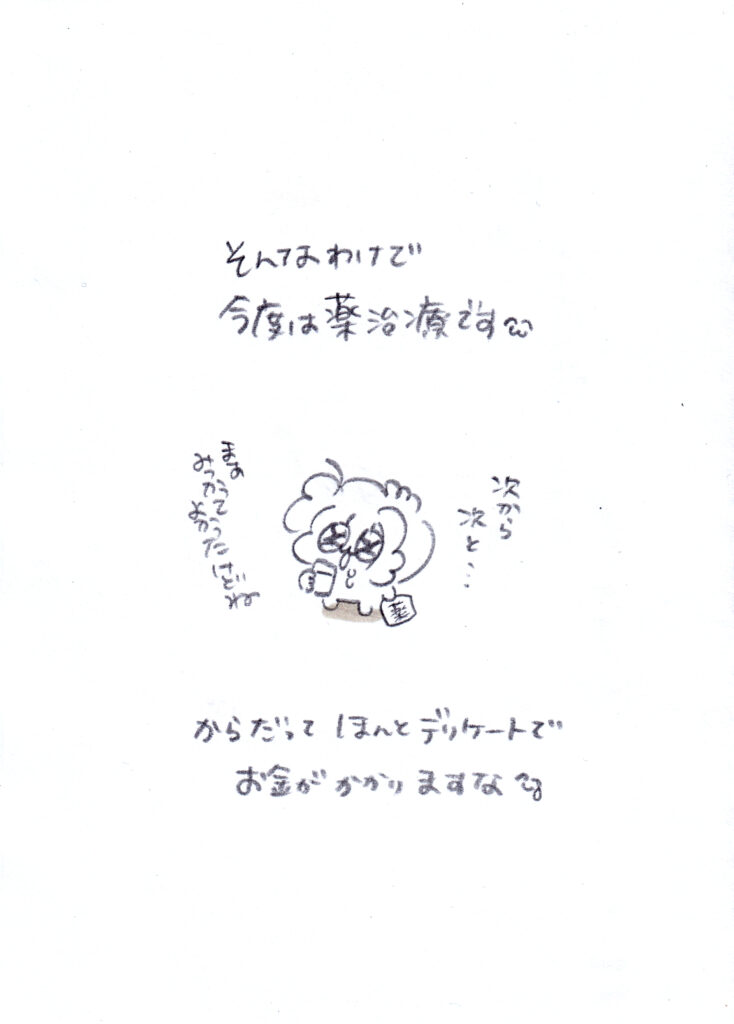 そんなわけで
今度は薬治療です
次から
次と…
まぁ
みつかって
よかったけどね
薬
からだって ほんと デリケートで
お金が かかり ますな